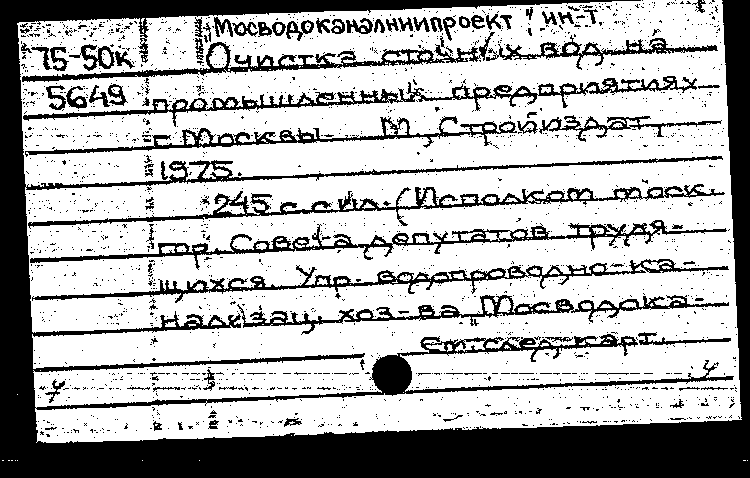 "Мосводоканалниипроект", ин-т.
75-50к Очистка сточных вод на
5649 промышленных предприятиях
г. Москвы. М., Стройиздат,
1975.
245 с. с ил. (Исполком моск.
гор. Совета депутатов трудя-
щихся. Упр. водопроводно-ка-
нализац. хоз-ва "Мосводока-
См. след. карт.